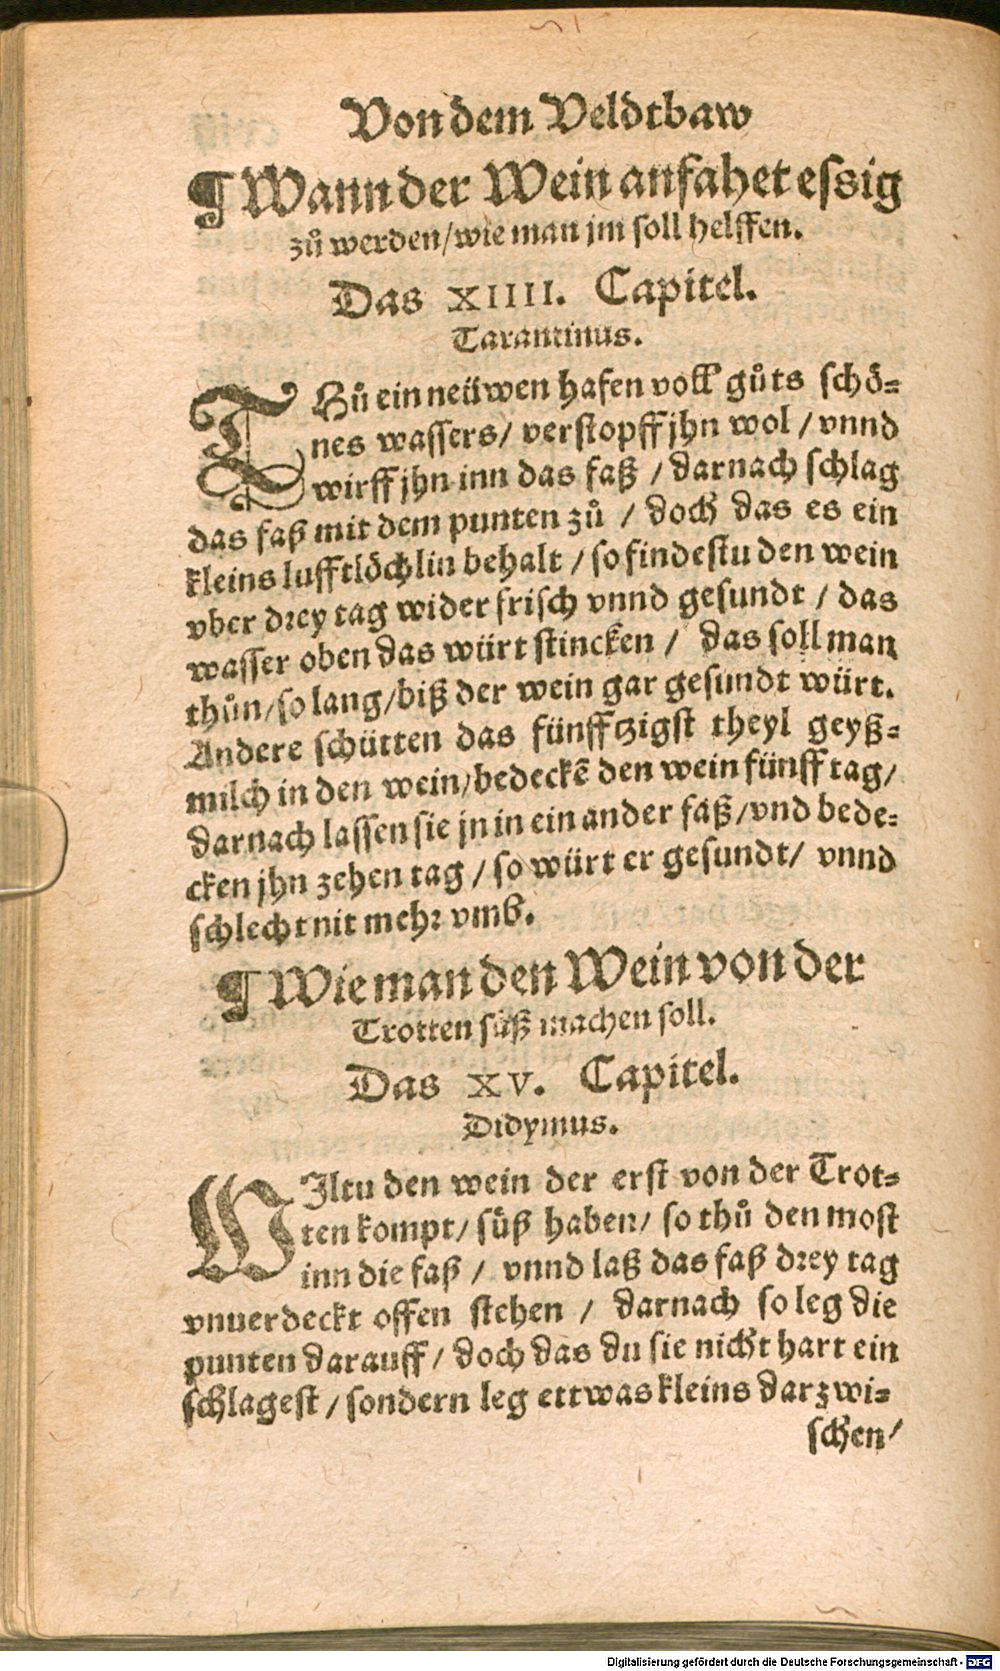 Von dem Veldtbaw
¶ Wann der Wein anfahet essig
zů werden/wie man jm soll helffen.
Das XIIII. Capitel.
Tarantinus.
THů ein neüwen hafen voll gůts schö=
nes wassers/ verstopff jhn wol / vnnd
wirff jhn inn das faß / darnach schlag
das faß mit dem punten zů / doch das es ein
kleins lufftlöchlin behalt / so findestu den wein
vber drey tag wider frisch vnnd gesundt / das
wasser oben das würt stincken / das soll man
thůn/so lang/biß der wein gar gesundt würt.
Andere schütten das fünfftzigst theyl geyß=
milch in den wein/bedeckē den wein fünff tag/
darnach lassen sie jn in ein ander faß/vnd bede=
cken jhn zehen tag / so würt er gesundt/ vnnd
schlecht nit mehr vmb.
¶ Wie man den Wein von der
Trotten süß machen soll.
Das XV. Capitel.
Didymus.
WIltu den wein der erst von der Trot=
ten kompt/ süß haben/ so thů den most
inn die faß / vnnd laß das faß drey tag
vnuerdeckt offen stehen / darnach so leg die
punten darauff / doch das du sie nicht hart ein
schlagest / sondern leg ettwas kleins darzwi=
schen/
Digitalisierung gefördert durch die Deutsche Forschungsgemeinschaft - DFG